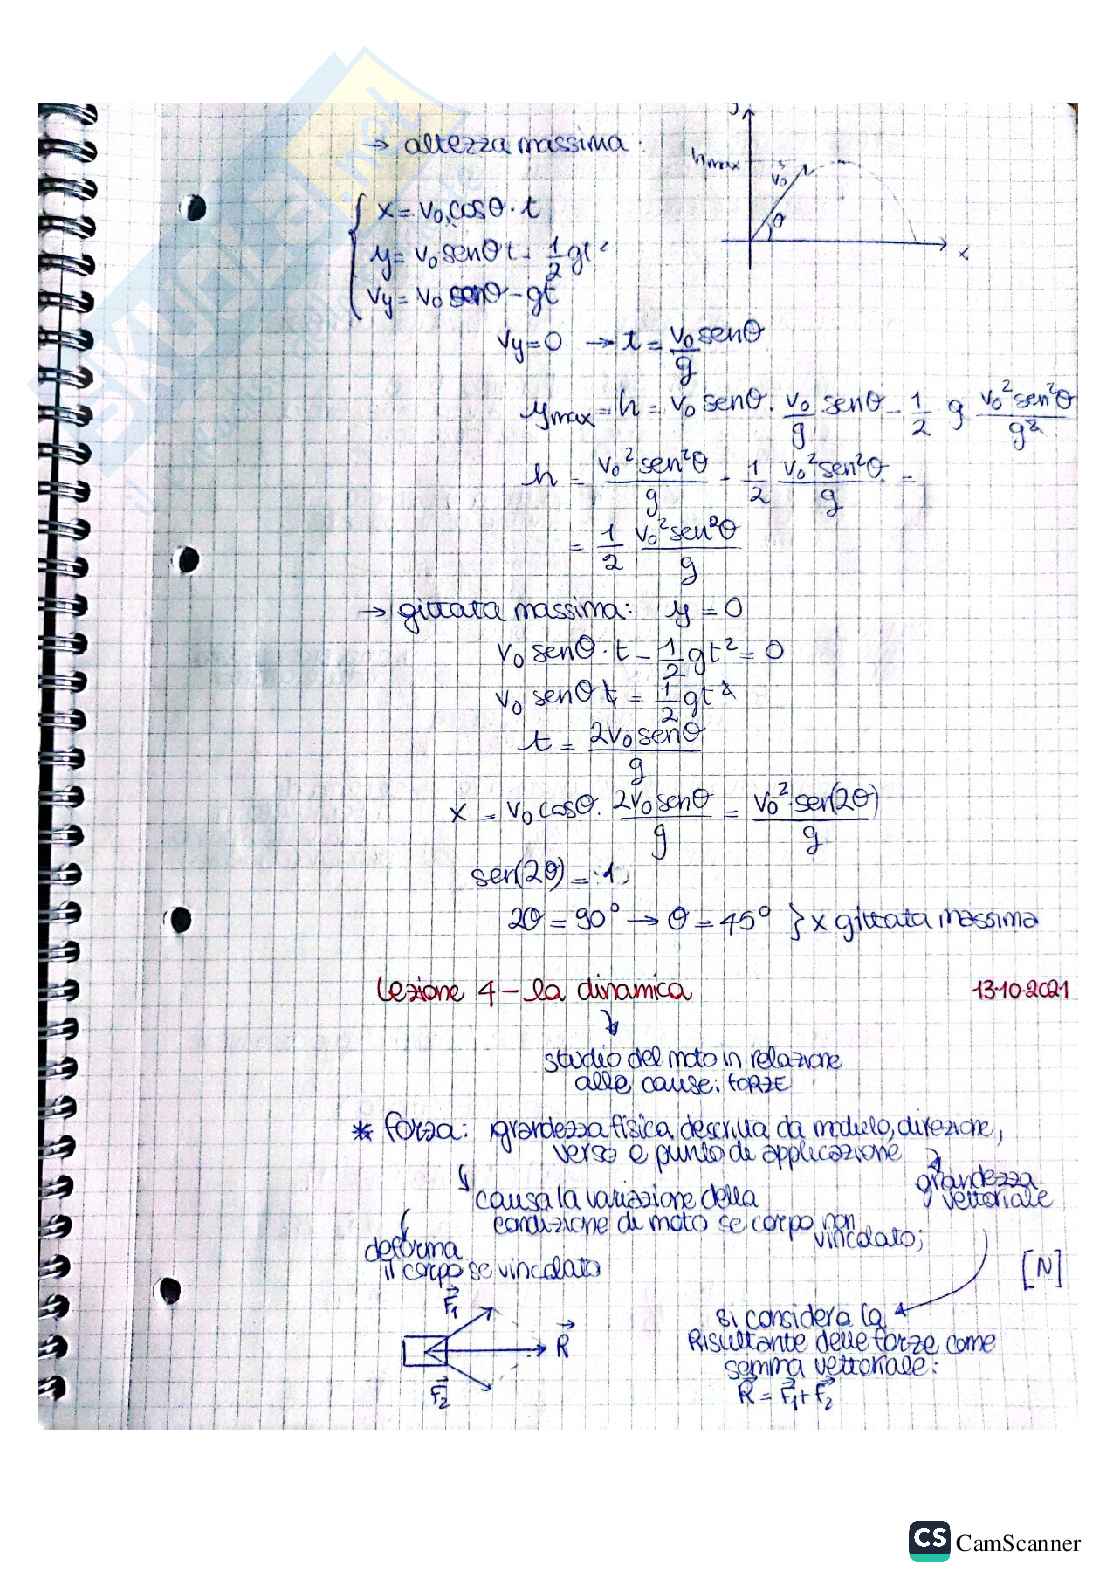 → altezza massima:
y
hmax
v₀
θ
x
x = v₀ cosθ · t
y = v₀ senθ t - 1/2 gt²
vy = v₀ senθ - gt
vy = 0 → t = v₀/g senθ
ymax = h = v₀ senθ · v₀/g senθ - 1/2 g v₀² sen²θ/g²
h = v₀² sen²θ/g - 1/2 v₀² sen²θ/g =
= 1/2 v₀² sen²θ/g
→ gittata massima: y = 0
v₀ senθ · t - 1/2 gt² = 0
v₀ senθ t = 1/2 gt²
t = 2v₀ senθ/g
x = v₀ cosθ · 2v₀ senθ/g = v₀² sen(2θ)/g
sen(2θ) = 1
2θ = 90° → θ = 45° } x gittata massima
Lezione 4 - la dinamica 13·10·2021
studio del moto in relazione
alle cause: FORZE
* forza: grandezza fisica descritta da modulo, direzione,
verso e punto di applicazione
grandezza
vettoriale
causa la variazione della
condizione di moto se corpo non
vincolato;
deforma
il corpo se vincolato
[N]
F⃗₁
R⃗
F⃗₂
si considera la
Risultante delle forze come
somma vettoriale:
R⃗ = F⃗₁ + F⃗₂
CS CamScanner